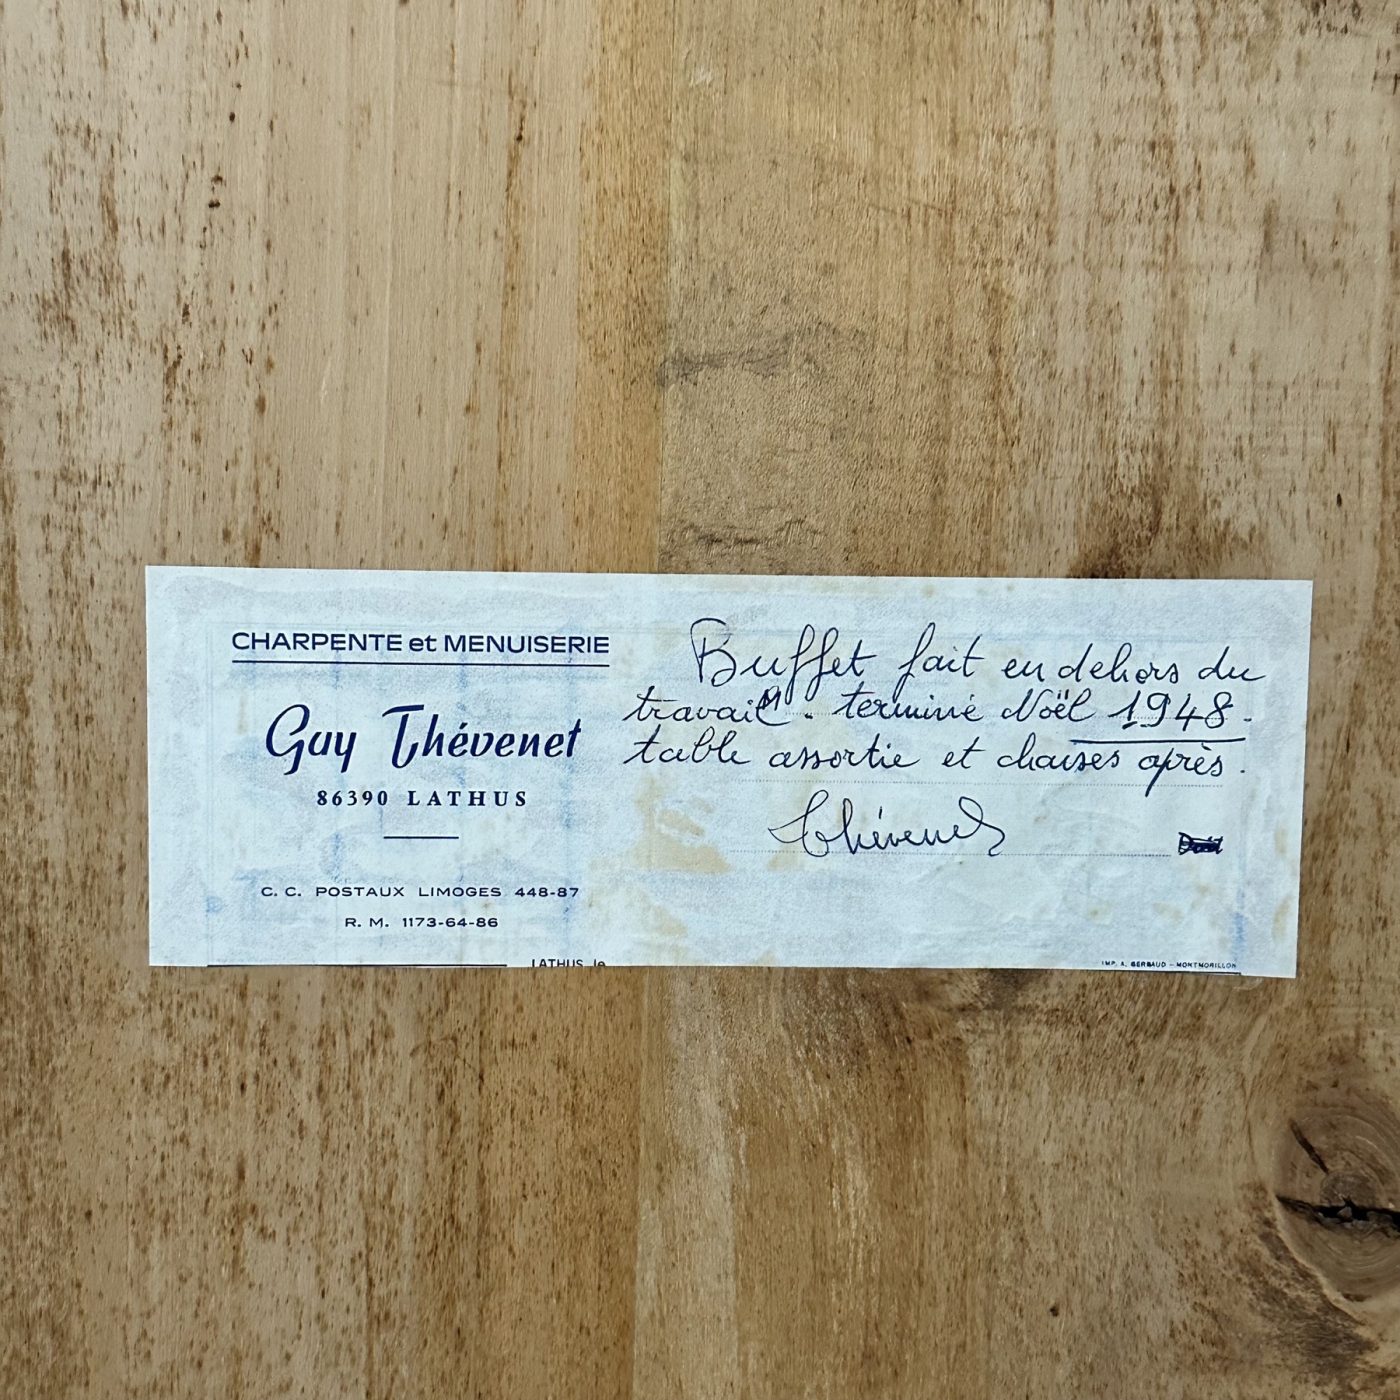 CHARPENTE et MENUISERIE
Guy Thévenet
86390 LATHUS
C. C. POSTAUX LIMOGES 448-87
R. M. 1173-64-86
LATHUS, le
Buffet fait en dehors du
travail. terminé Noël 1948.
table assortie et chaises après.
Thévenet
IMP. A. GERBAUD - MONTMORILLON